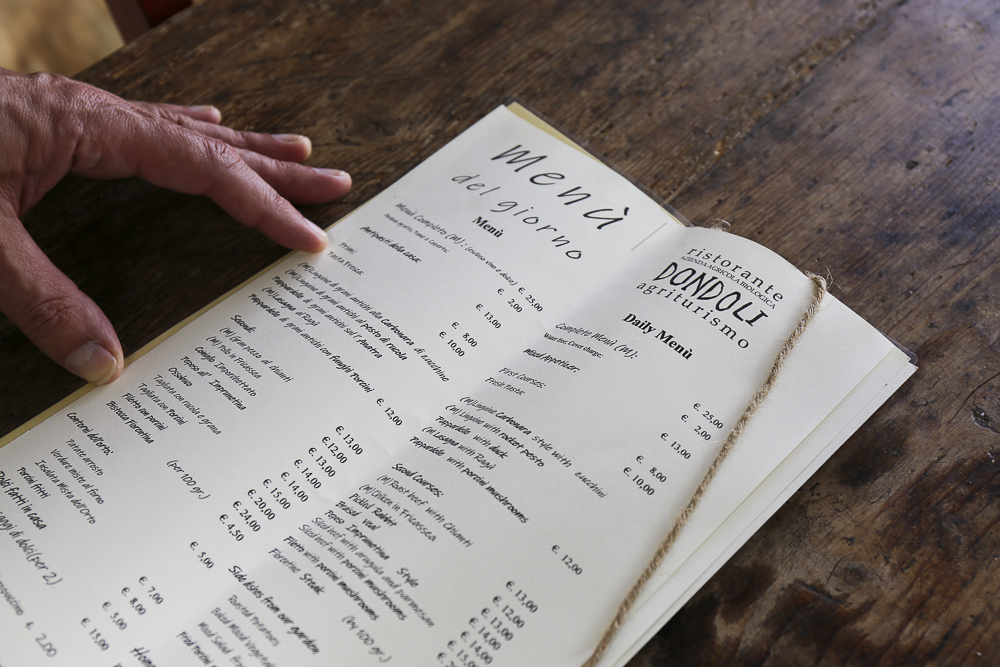 Menù
del giorno
Menù
Menù Completo (M): (escluso vino e dolce) €. 25,00
€. 2,00
Antipasti della casa: €. 13,00
Primi:
Pasta Fresca: €. 8,00
€. 10,00
(M) Linguine di grani antichi alla Carbonara di zucchine
(M) Linguine di grani antichi al pesto di rucola
Pappardelle di grani antichi sull'Anatra
(M) Lasagna al Ragù
Pappardelle grani antichi con funghi Porcini €. 12,00
Secondi:
(M) Gran pezzo al chianti €. 13,00
(M) Pollo in Fricassea €. 12,00
Coniglio Imporchettato €. 13,00
Peposo all' Imprunetina €. 14,00
Ossobuco €. 14,00
Tagliata con rucola e grana €. 15,00
Tagliata con Porcini €. 20,00
Filetto con porcini €. 24,00
Bistecca Fiorentina (per 100 gr.) €. 4,50
Contorni dell'orto: €. 5,00
Patate arrosto
Verdure miste al forno
Insalata Mista dell'Orto
Porcini fritti €. 7,00
Dolci fatti in casa €. 5,00
€. 8,00
di dolci (per 2) €. 15,00
€. 2,00
ristorante
AZIENDA AGRICOLA BIOLOGICA
DONDOLI
agriturismo
Daily Menù
Complete Menù (M): €. 25,00
Water, Bread, Cover charge. €. 2,00
Mixed Appetizer: €. 13,00
First Courses:
Fresh Pasta: €. 8,00
€. 10,00
(M) Linguine Carbonara style with zucchini
(M) Linguine with rocket pesto
Pappardelle with duck
(M) Lasagna with Ragù
Pappardelle with porcini mushrooms €. 12,00
Second Courses:
(M) Roast beef with Chianti €. 13,00
(M) Chicken in Fricassea €. 12,00
Picked Rabbit €. 13,00
Braised veal €. 14,00
Peposo Imprunetina Style €. 14,00
Sliced beef with arugula and parmesan €. 15,00
Sliced beef with porcini mushrooms
Filetto with porcini mushrooms
Florentine Steak (by 100 gr.)
Side dishes from our garden
Roasted potatoes
Baked Mixed
Mixed Salad
Fried Porcini